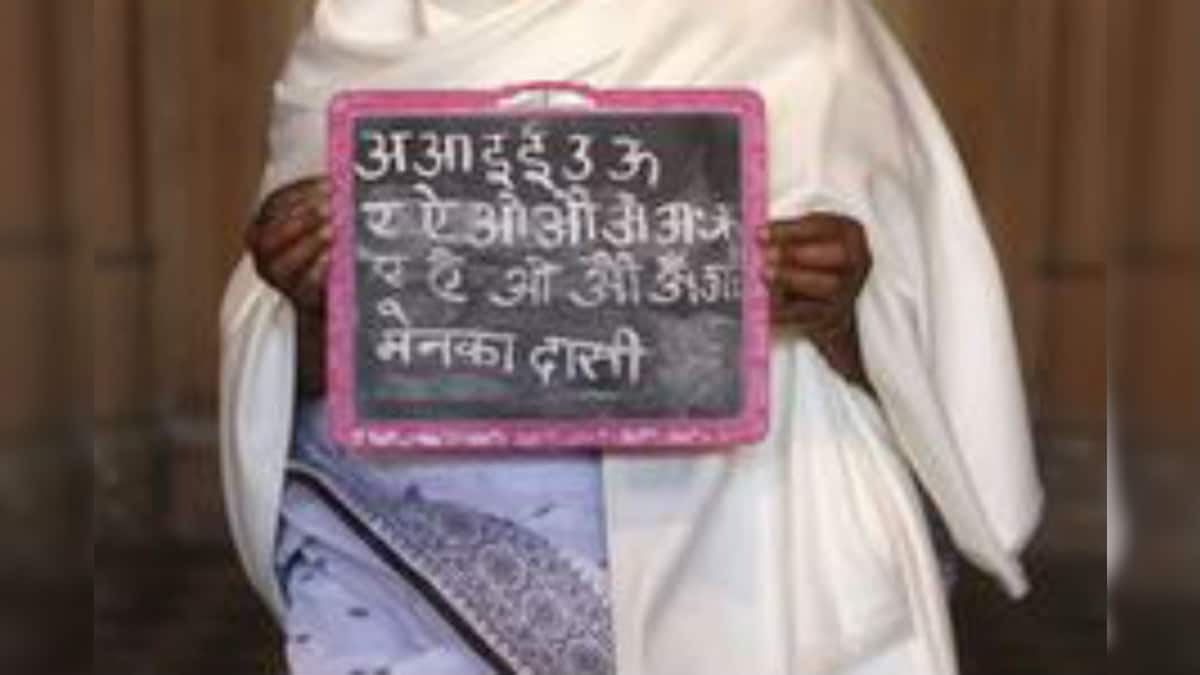 अ आ इ ई उ ऊ
ए ऐ ओ औ अं अः
ए ऐ ओ औ अं
मेनका दासी